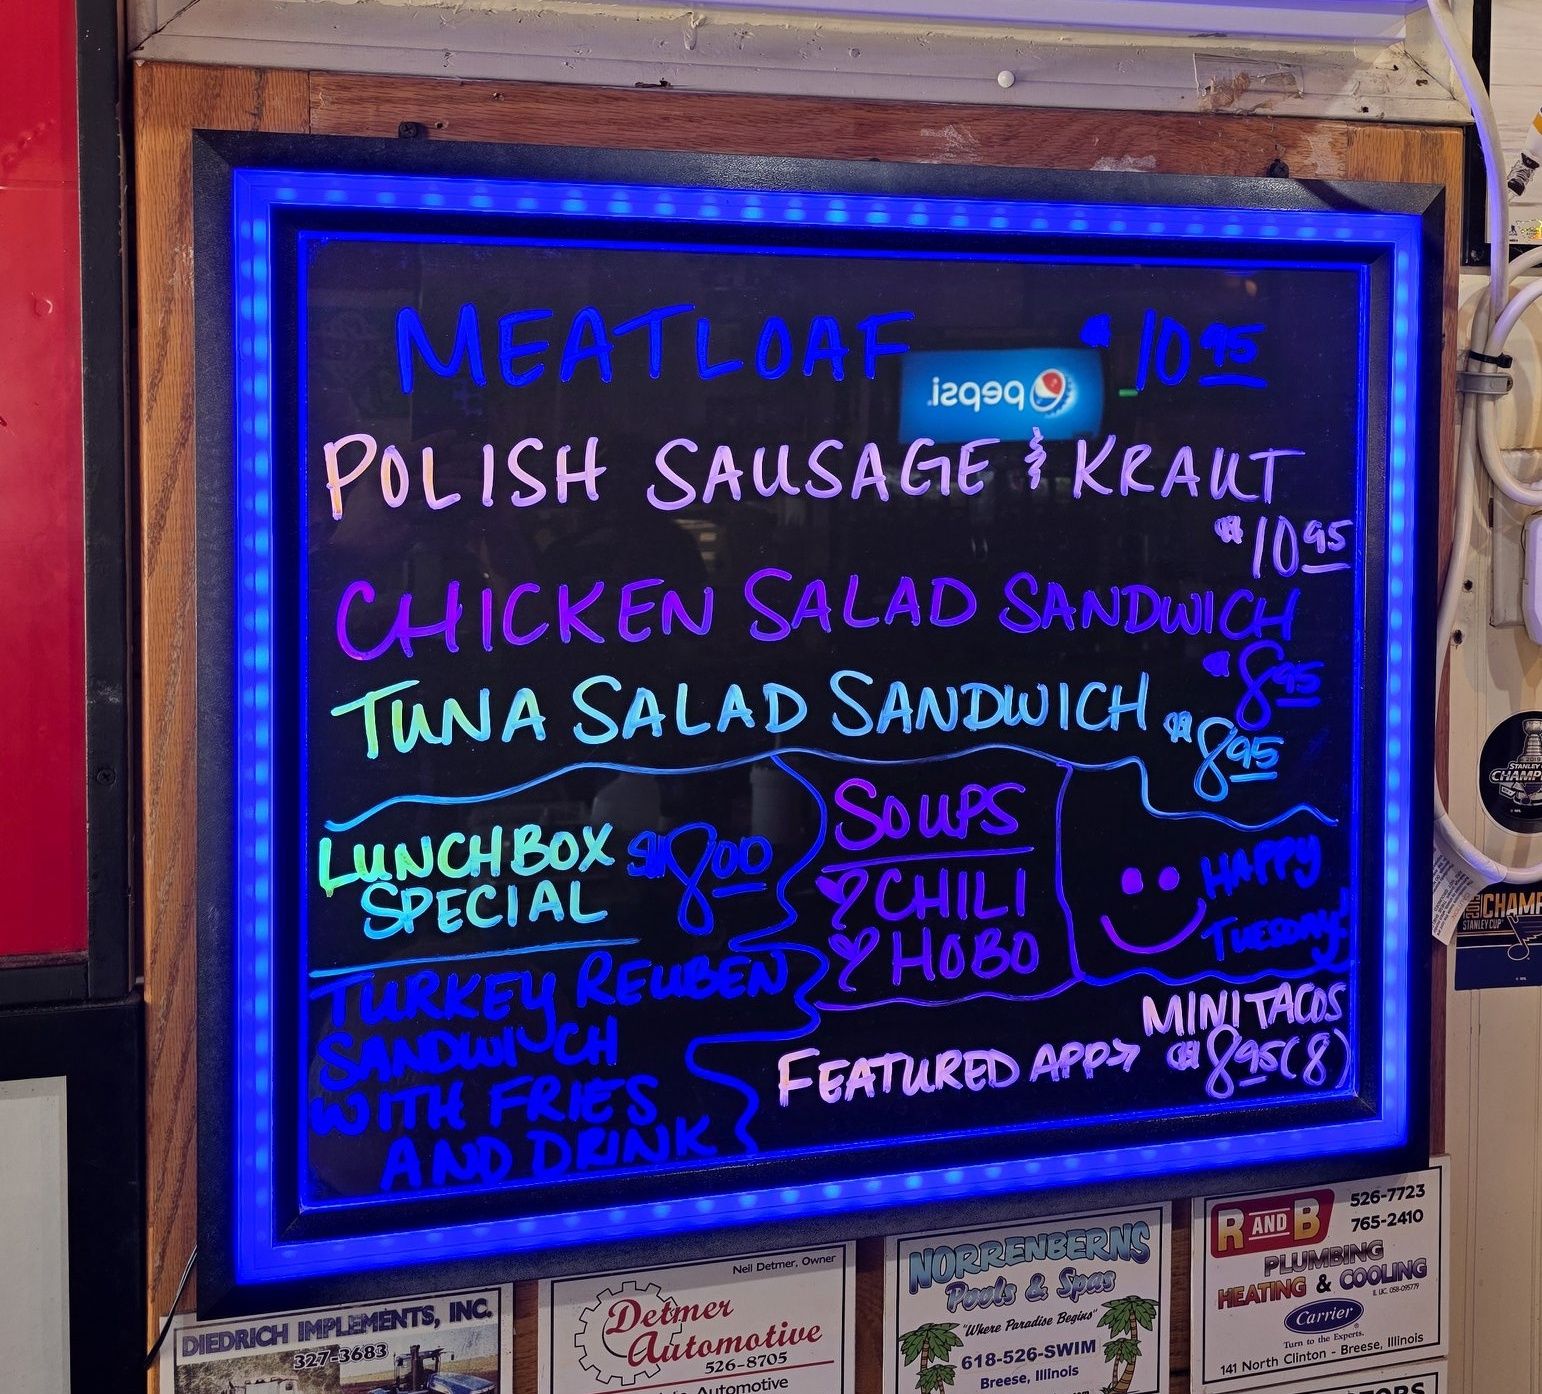 MEATLOAF $10.95
pepsi
POLISH SAUSAGE & KRAUT
$10.95
CHICKEN SALAD SANDWICH
$8.95
TUNA SALAD SANDWICH $8.95
LUNCHBOX $8.00
SPECIAL
TURKEY REUBEN
SANDWICH
WITH FRIES
AND DRINK
SOUPS
CHILI
HOBO
HAPPY
TUESDAY!
MINI TACOS
FEATURED APP→ $8.95 (8)
STANLEY
CHAMP
CHAMP
STANLEY CUP
DIEDRICH IMPLEMENTS, INC.
327-3683
Neil Detmer, Owner
Detmer
Automotive
526-8705
Automotive
NORRENBERNS
Pools & Spas
"Where Paradise Begins"
618-526-SWIM
Breese, Illinois
R AND B
526-7723
765-2410
PLUMBING
HEATING & COOLING
Carrier
Turn to the Experts.
141 North Clinton - Breese, Illinois